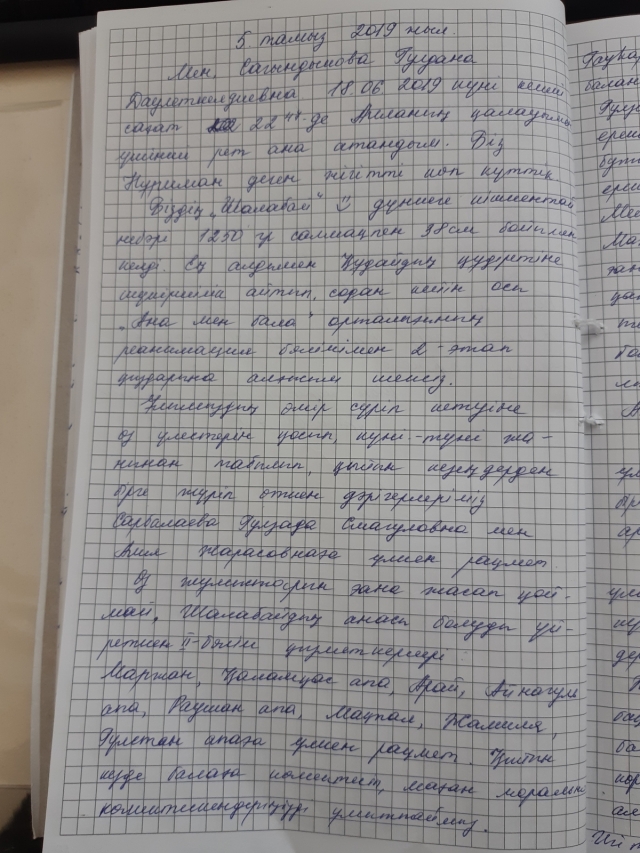 5 тамыз 2019 жыл.
Мен, Сагындыкова Гулдана
Даулеткелдиевна 18.06 2019 күні кешкі
сағат 22 44-де Алланың қалауымен
үшінші рет ана атандым. Біз
Нуриман деген жігітті көп күттік
Біздің „Шалабай" дүниеге кішкентай
небәрі 1250 гр салмақпен 38 см бойымен
келді. Ең алдымен Құдайдың құдіретіне
шүкіршілік айтып, содан кейін осы
„Ана мен бала" орталығының
реанимация бөлімімен 2-этап
дәрігерлеріне алғысым шексіз.
Ұлымыздың өмір сүріп кетуіне
өз үлестерін қосып, күні-түні жа-
нынан табылып, қиын кезеңдерден
бірге жүріп өткен дәрігерлеріміз
Сарбалаева Гулзада Смагуловна мен
Асия Жарасовнаға үлкен рахмет
Өз жұмыстарын ғана жасап қой-
май, Шалабайдың анасы болуды үй-
реткен II-бөлім қызметкерлері:
Маржан, Қаламқас апа, Арай, Айнагүл
апа, Раушан апа, Мақпал, Жамиля,
Гүлстан апаға үлкен рахмет. Қиын
кезде балаға көмектесіп, маған моральн
көмектескендеріңізді ұмытпаймыз.